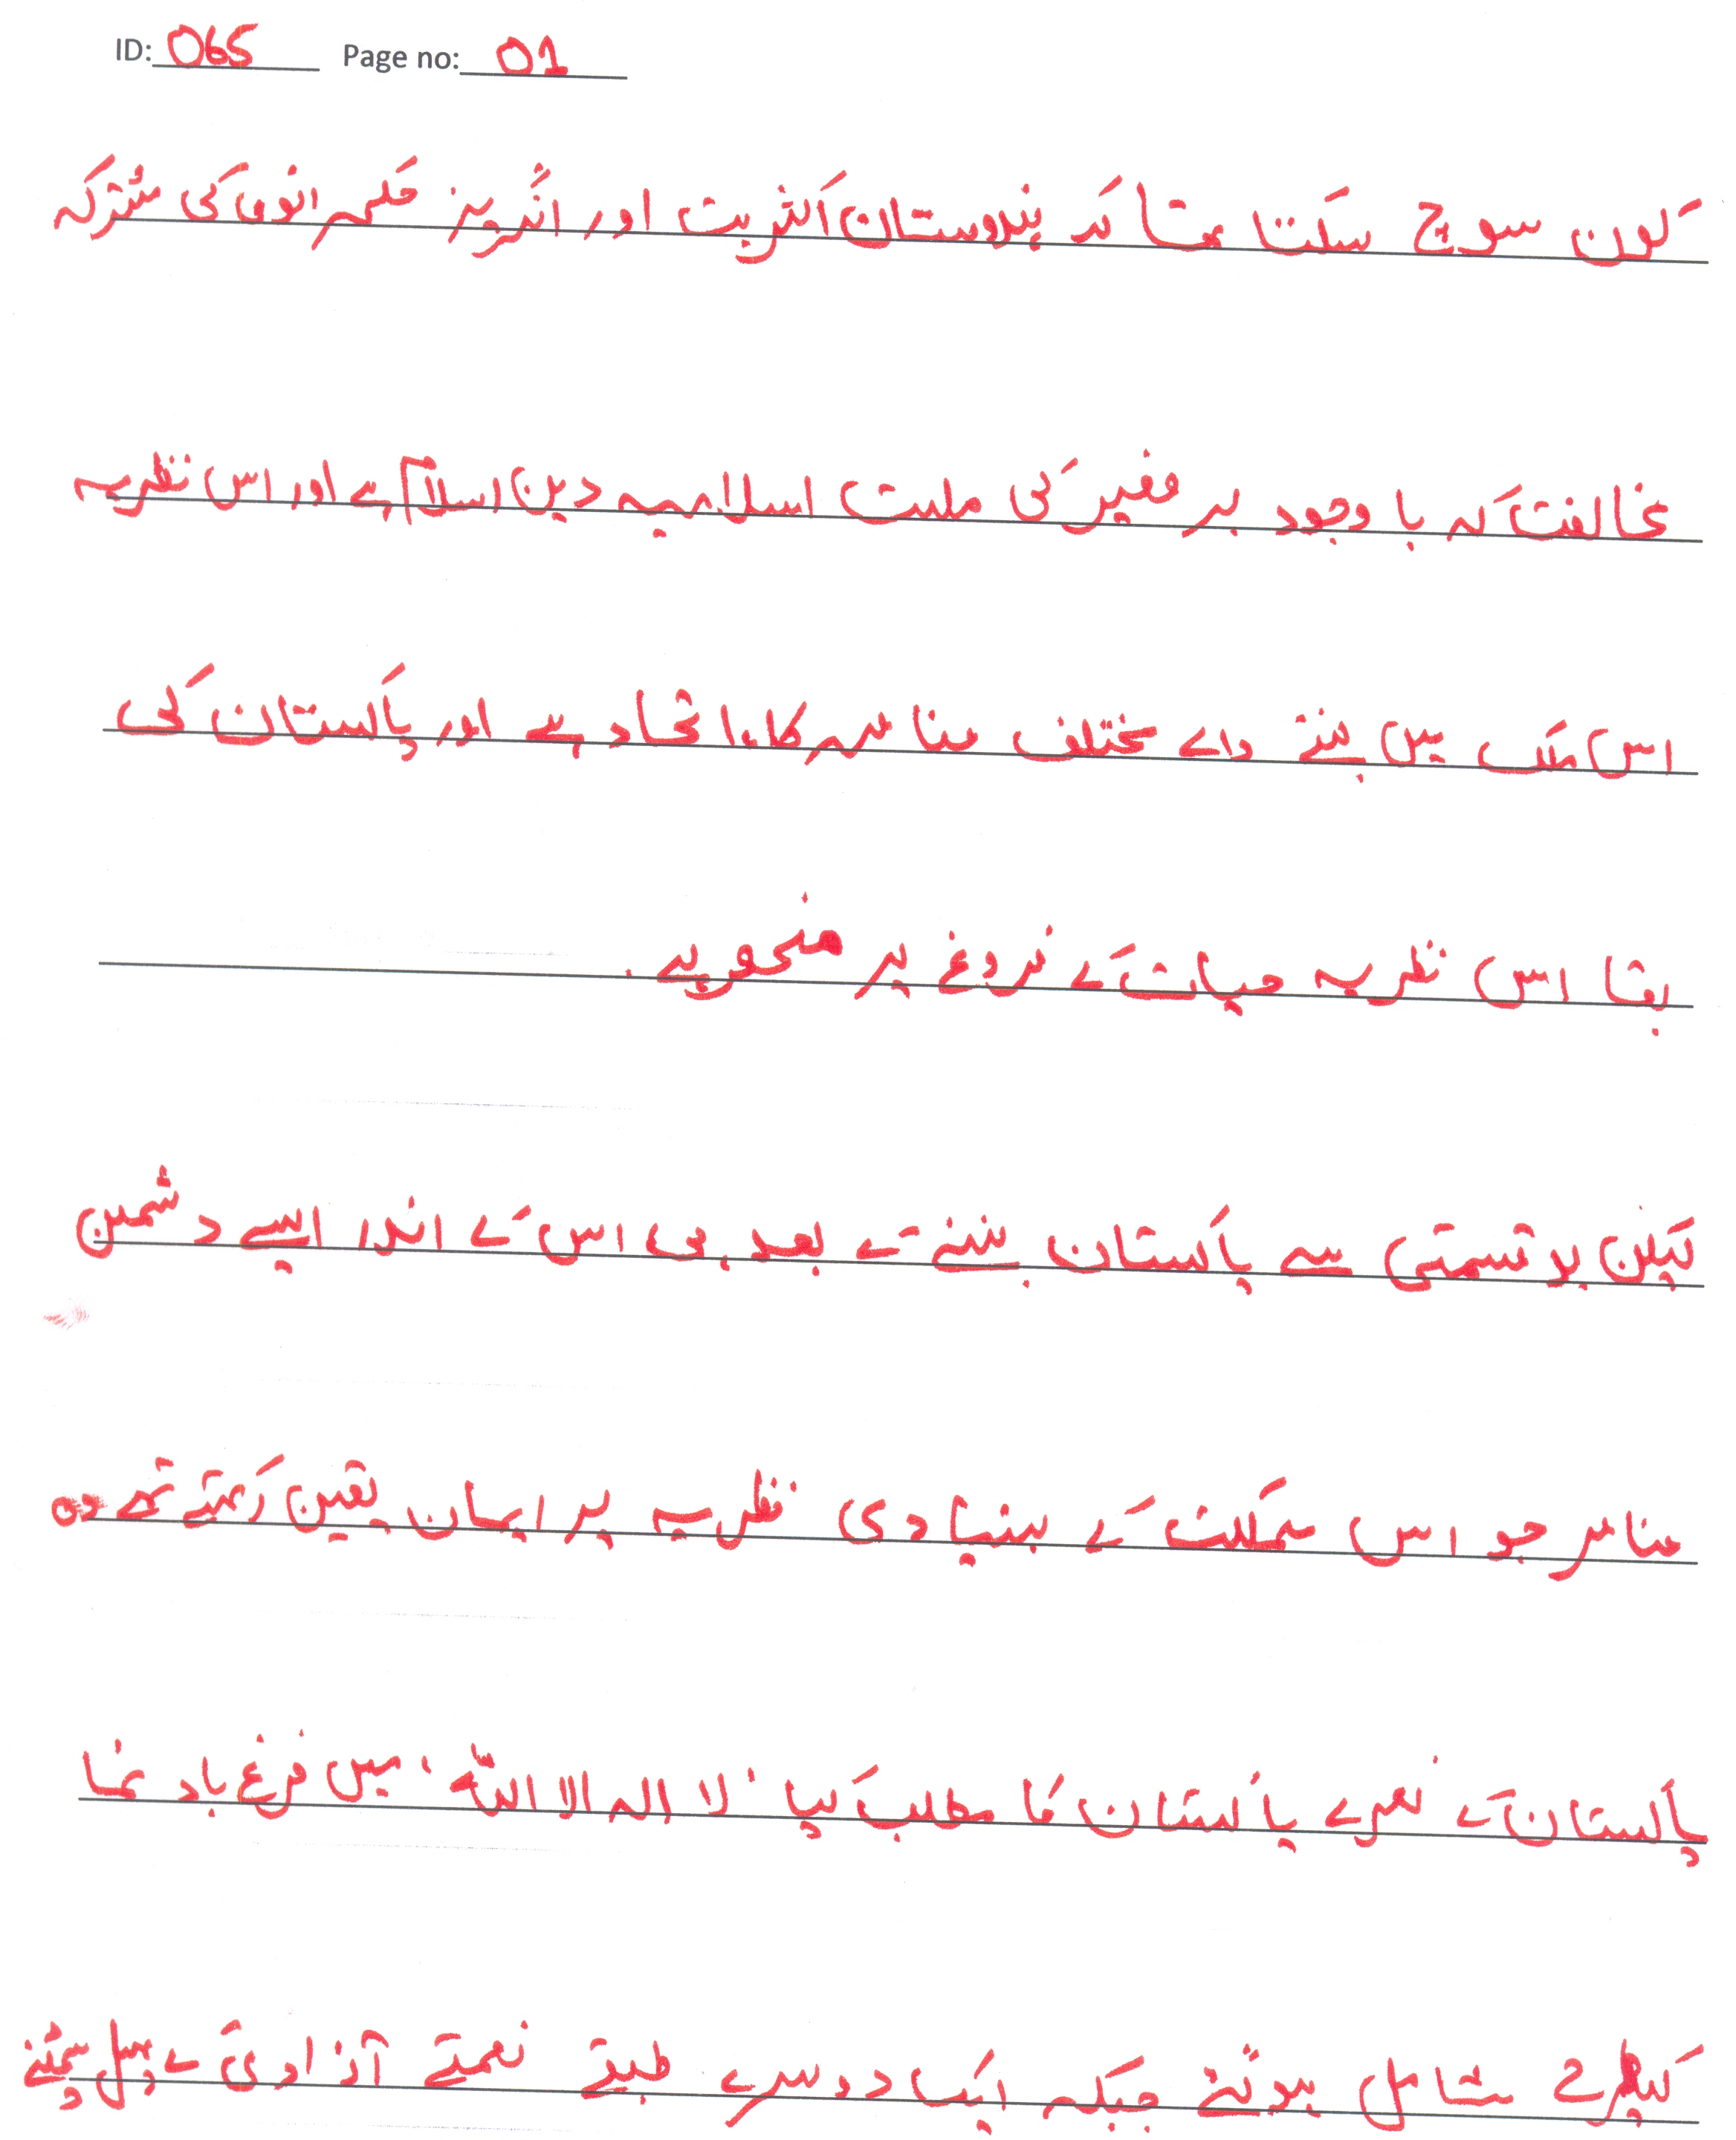 ID: 065 Page no: 01
کون سوچ سکتا تھا کہ ہندوستان اکثریت اور انگریز حکمرانوں کی مشترکہ
مخالفت کہ باوجود برصغیر کی ملت اسلامیہ دین اسلام ہے اور اس نظریہ
اس ملک میں بسنے والے مختلف عناصر کا اتحاد ہے اور پاکستان کی
بقا اس نظریہ حیات کے فروغ پر منحو ہے۔
لیکن بدقسمتی سے پاکستان بننے کے بعد ہی اس کے اندر ایسے دشمن
عناصر جو اس مملکت کے بنیادی نظریہ پر ایمان یقین رکھتے تھے وہ
پاکستان کے نعرے پاکستان کا مطلب کیا 'لا الہ الا اللہ' میں فرغ باد نما
کیڑے شامل ہوئے جبکہ ایک دوسرے طبقے نعمتے آزادی کے پھل سمٹنے